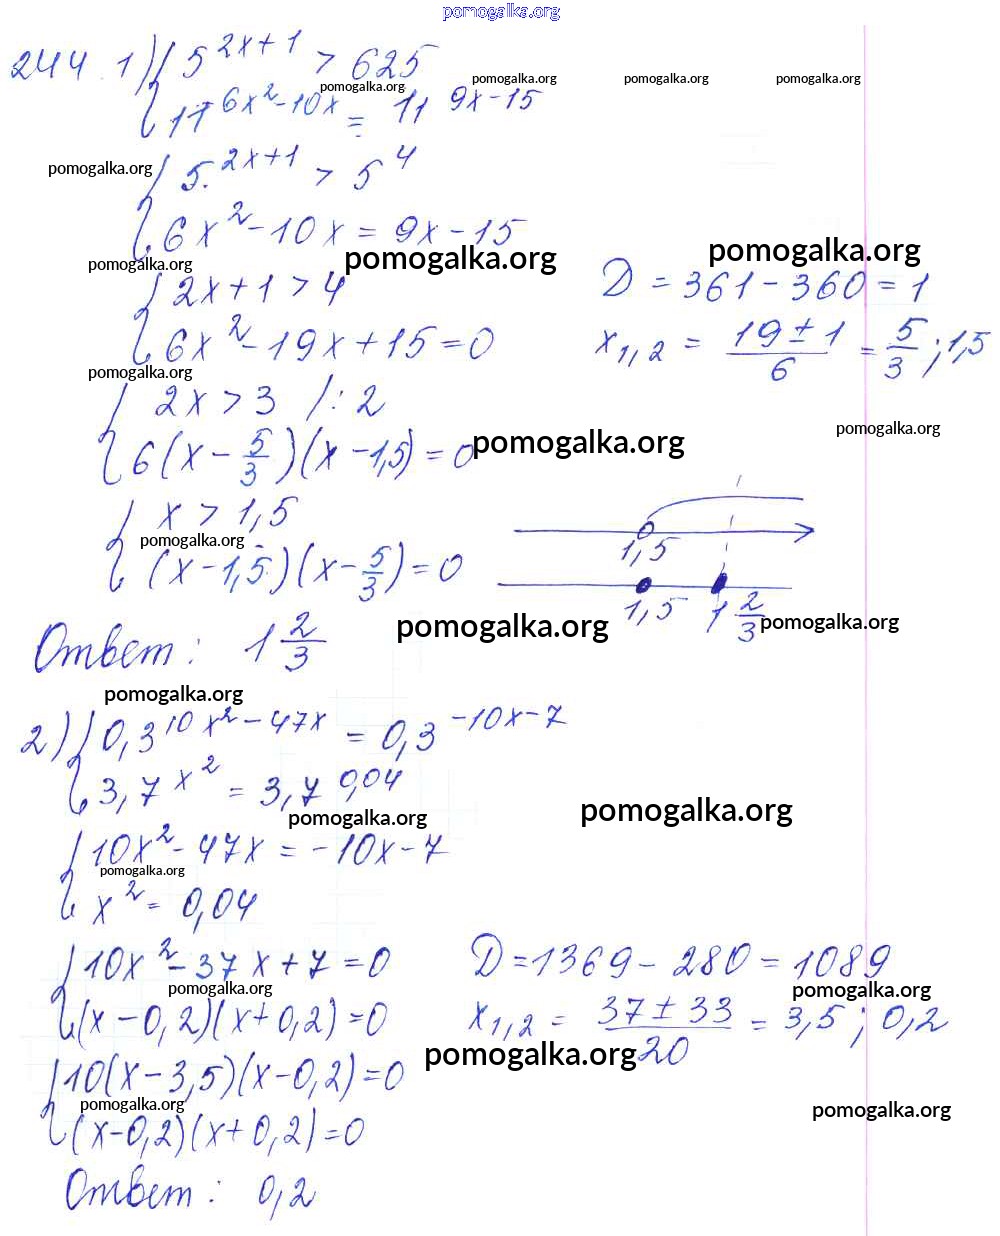 pomogalka.org
244. 1) { 5^(2x+1) > 625
pomogalka.org pomogalka.org pomogalka.org pomogalka.org
11^(6x²-10x) = 11^(9x-15)
pomogalka.org
{ 5^(2x+1) > 5^4
6x²-10x = 9x-15
pomogalka.org pomogalka.org pomogalka.org
{ 2x+1 > 4
6x²-19x+15=0
D = 361-360 = 1
x₁,₂ = (19±1)/6 = 5/3; 1,5
pomogalka.org
{ 2x > 3 /:2
6(x-5/3)(x-1,5) = 0
pomogalka.org pomogalka.org
{ x > 1,5
pomogalka.org
(x-1,5)(x-5/3) = 0
1,5
1,5 1 2/3
pomogalka.org pomogalka.org
Ответ: 1 2/3
pomogalka.org
2) { 0,3^(10x²-47x) = 0,3^(-10x-7)
3,7^(x²) = 3,7^(0,04)
pomogalka.org pomogalka.org
{ 10x²-47x = -10x-7
pomogalka.org
x² = 0,04
{ 10x²-37x+7=0
pomogalka.org
(x-0,2)(x+0,2)=0
D=1369-280=1089
pomogalka.org
x₁,₂ = (37±33)/20 = 3,5; 0,2
pomogalka.org
{ 10(x-3,5)(x-0,2)=0
pomogalka.org pomogalka.org
(x-0,2)(x+0,2)=0
Ответ: 0,2